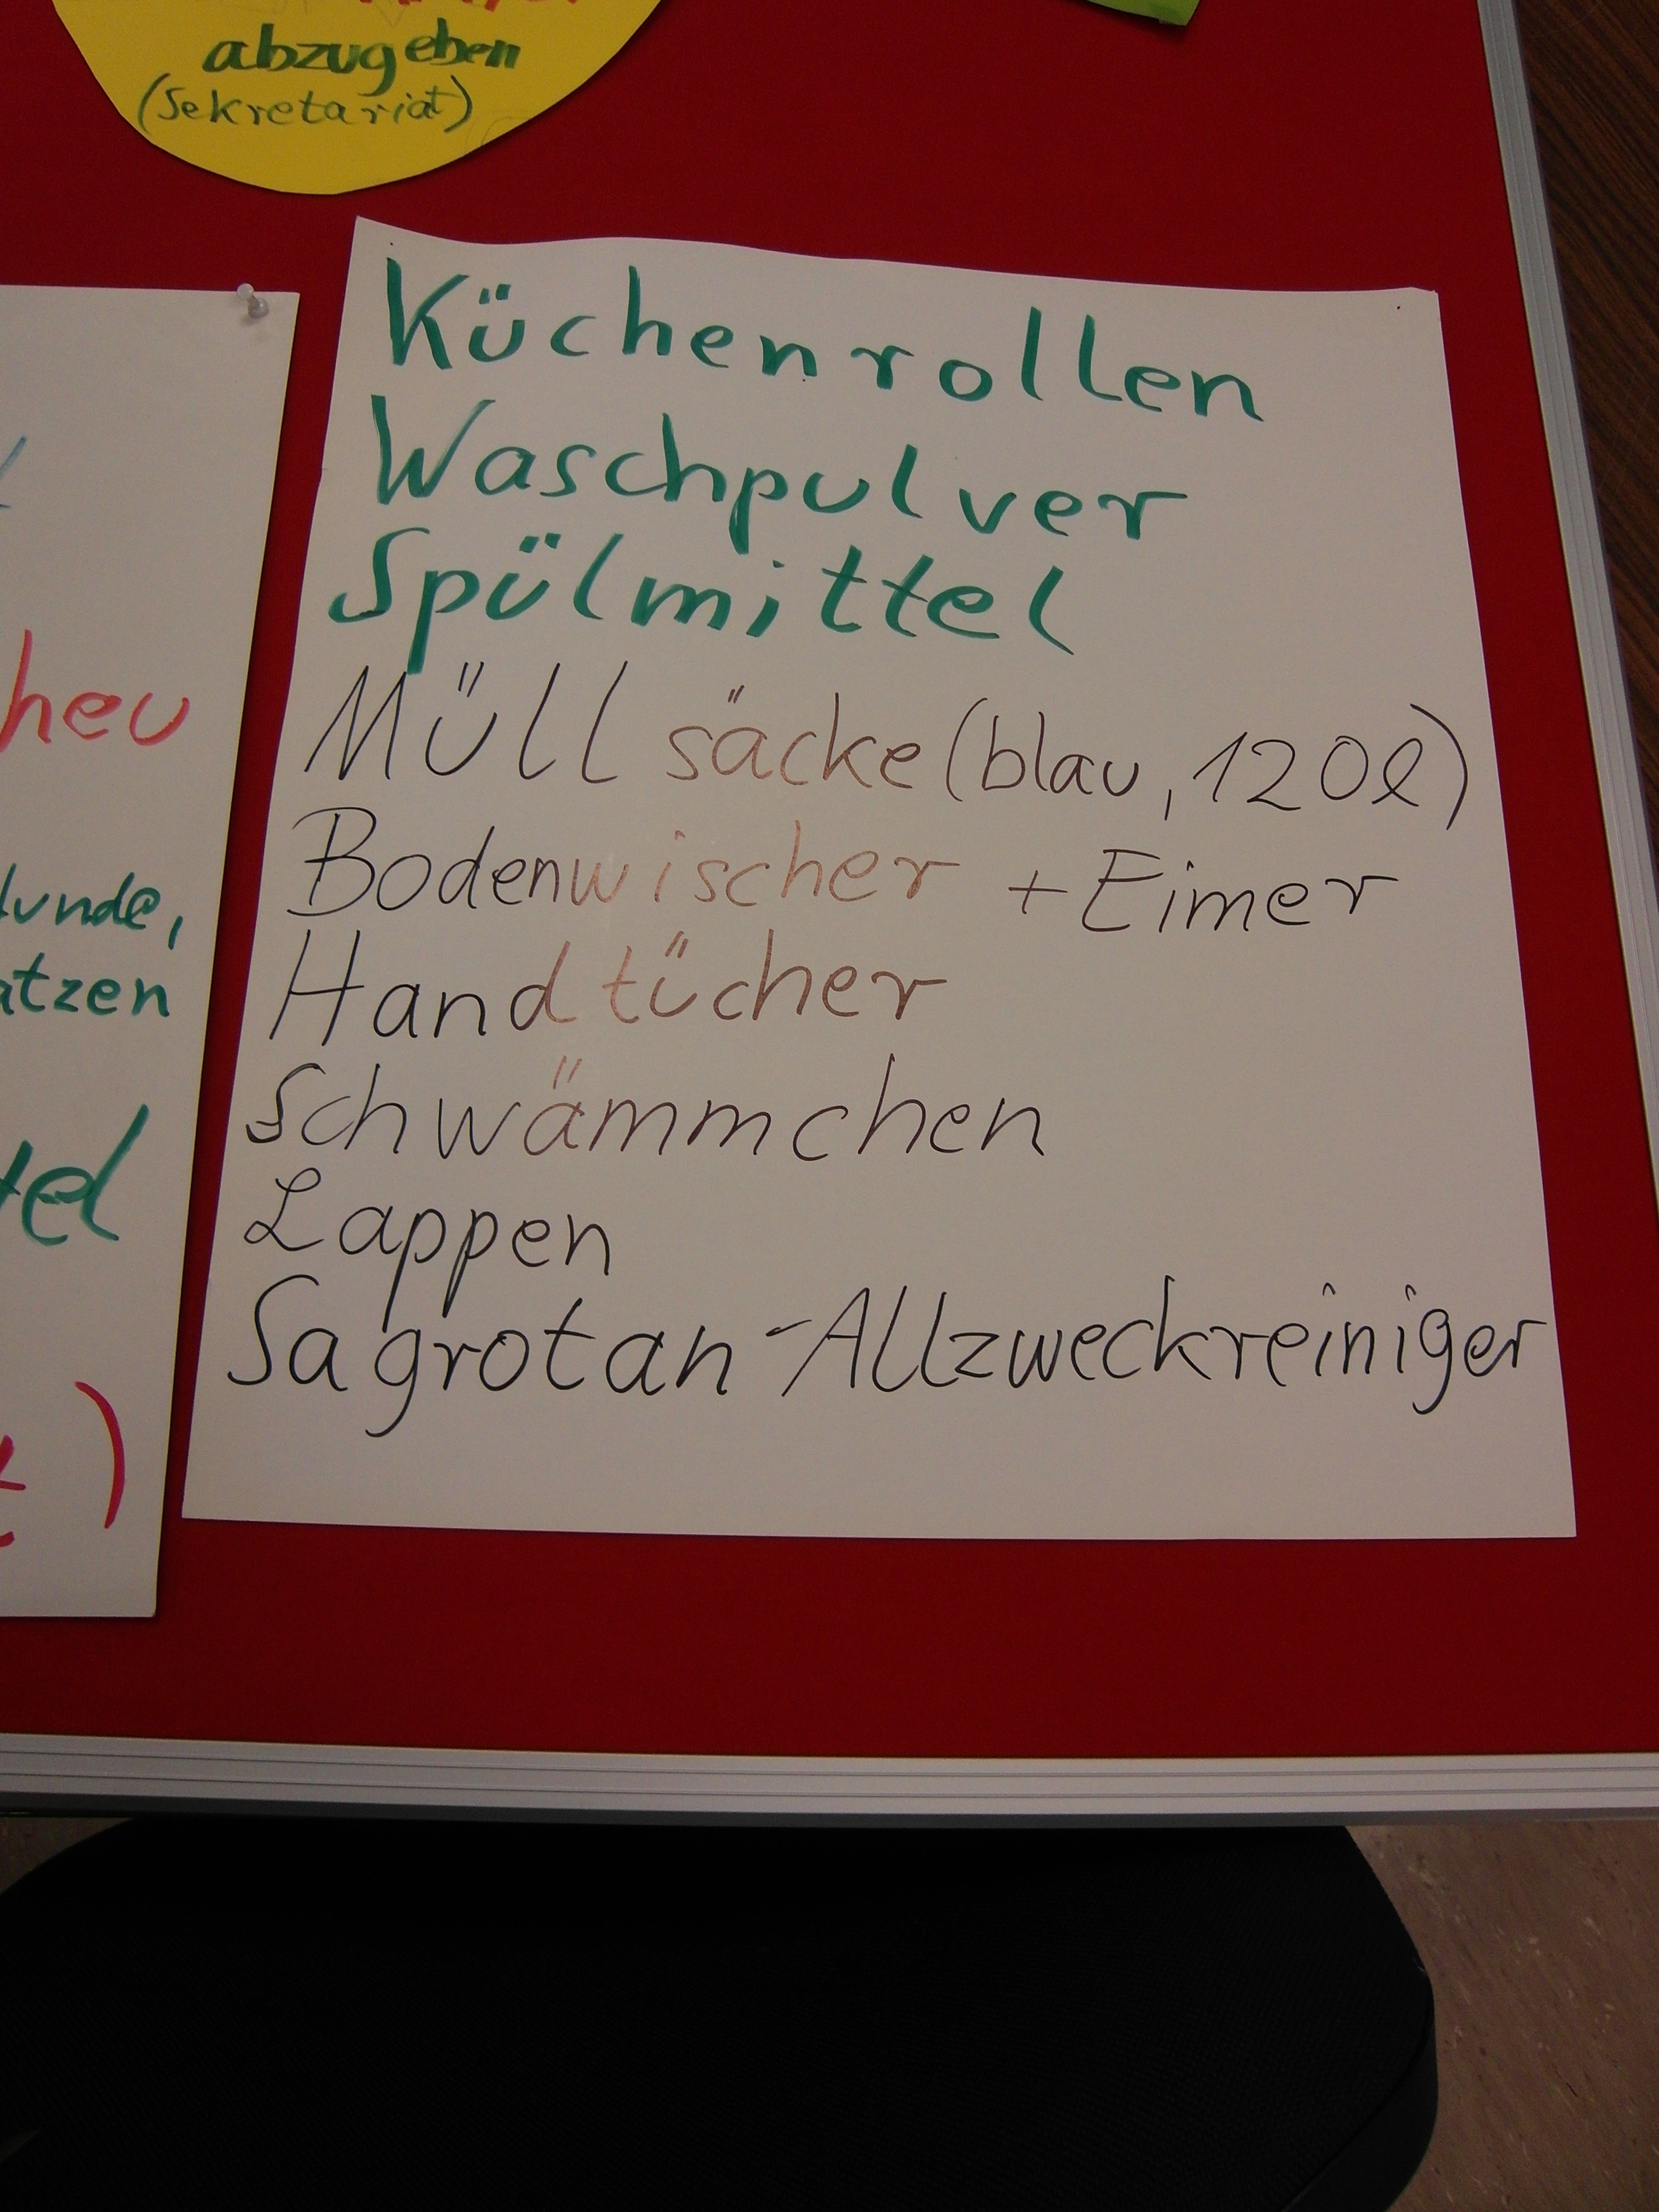 abzugeben
(Sekretariat)
Küchenrollen
Waschpulver
Spülmittel
Müllsäcke (blau, 120l)
Bodenwischer + Eimer
Handtücher
Schwämmchen
Lappen
Sagrotan-Allzweckreiniger
heu
)